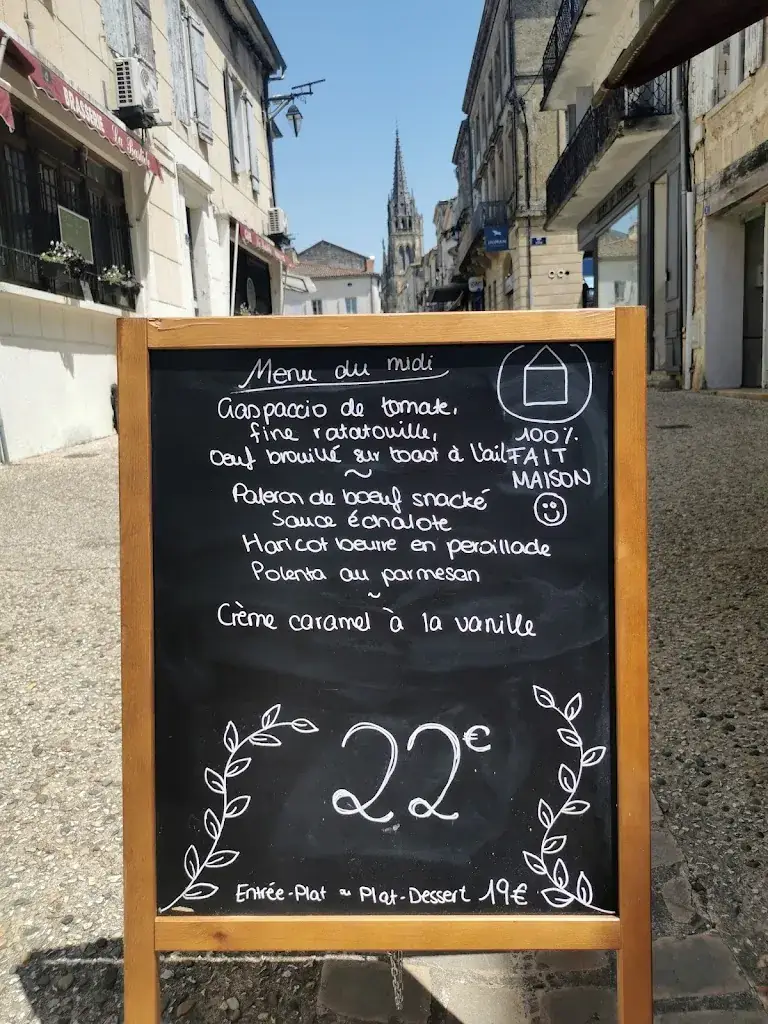 BRASSERIE La Bastide
Menu du midi
Gaspaccio de tomate,
fine ratatouille,
Oeuf brouillé sur toast à l'ail
~
Paleron de boeuf snacké
Sauce échalote
Haricot beurre en persillade
Polenta au parmesan
~
Crème caramel à la vanille
100%
FAIT
MAISON
22€
Entrée-Plat ~ Plat-Dessert 19€